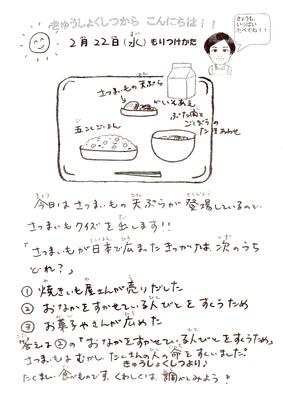 きゅうしょくしつから こんにちは！！
きょうも、
いっぱい
たべてね！！
2月22日(水)もりつけかた
さつまいもの天ぷら
かいそうあえ
五こくごはん
ぶた肉と
ごぼうの
たきあわせ
今日はさつまいもの天ぷらが登場しているので、
さつまいもクイズを出します!!
「さつまいもが日本で広まったきっかけは、次のうち
どれ？」
① 焼きいも屋さんが売りだした
② おなかをすかせている人びとをすくうため
③ お菓子やさんが広めた
答えは②の「おなかをすかせている人びとをすくうため」
さつまいもはむかし、たくさんの人の命をすくいました。
きゅうしょくしつより♪
たくましい食べものです。くわしくは、調べてみよう！